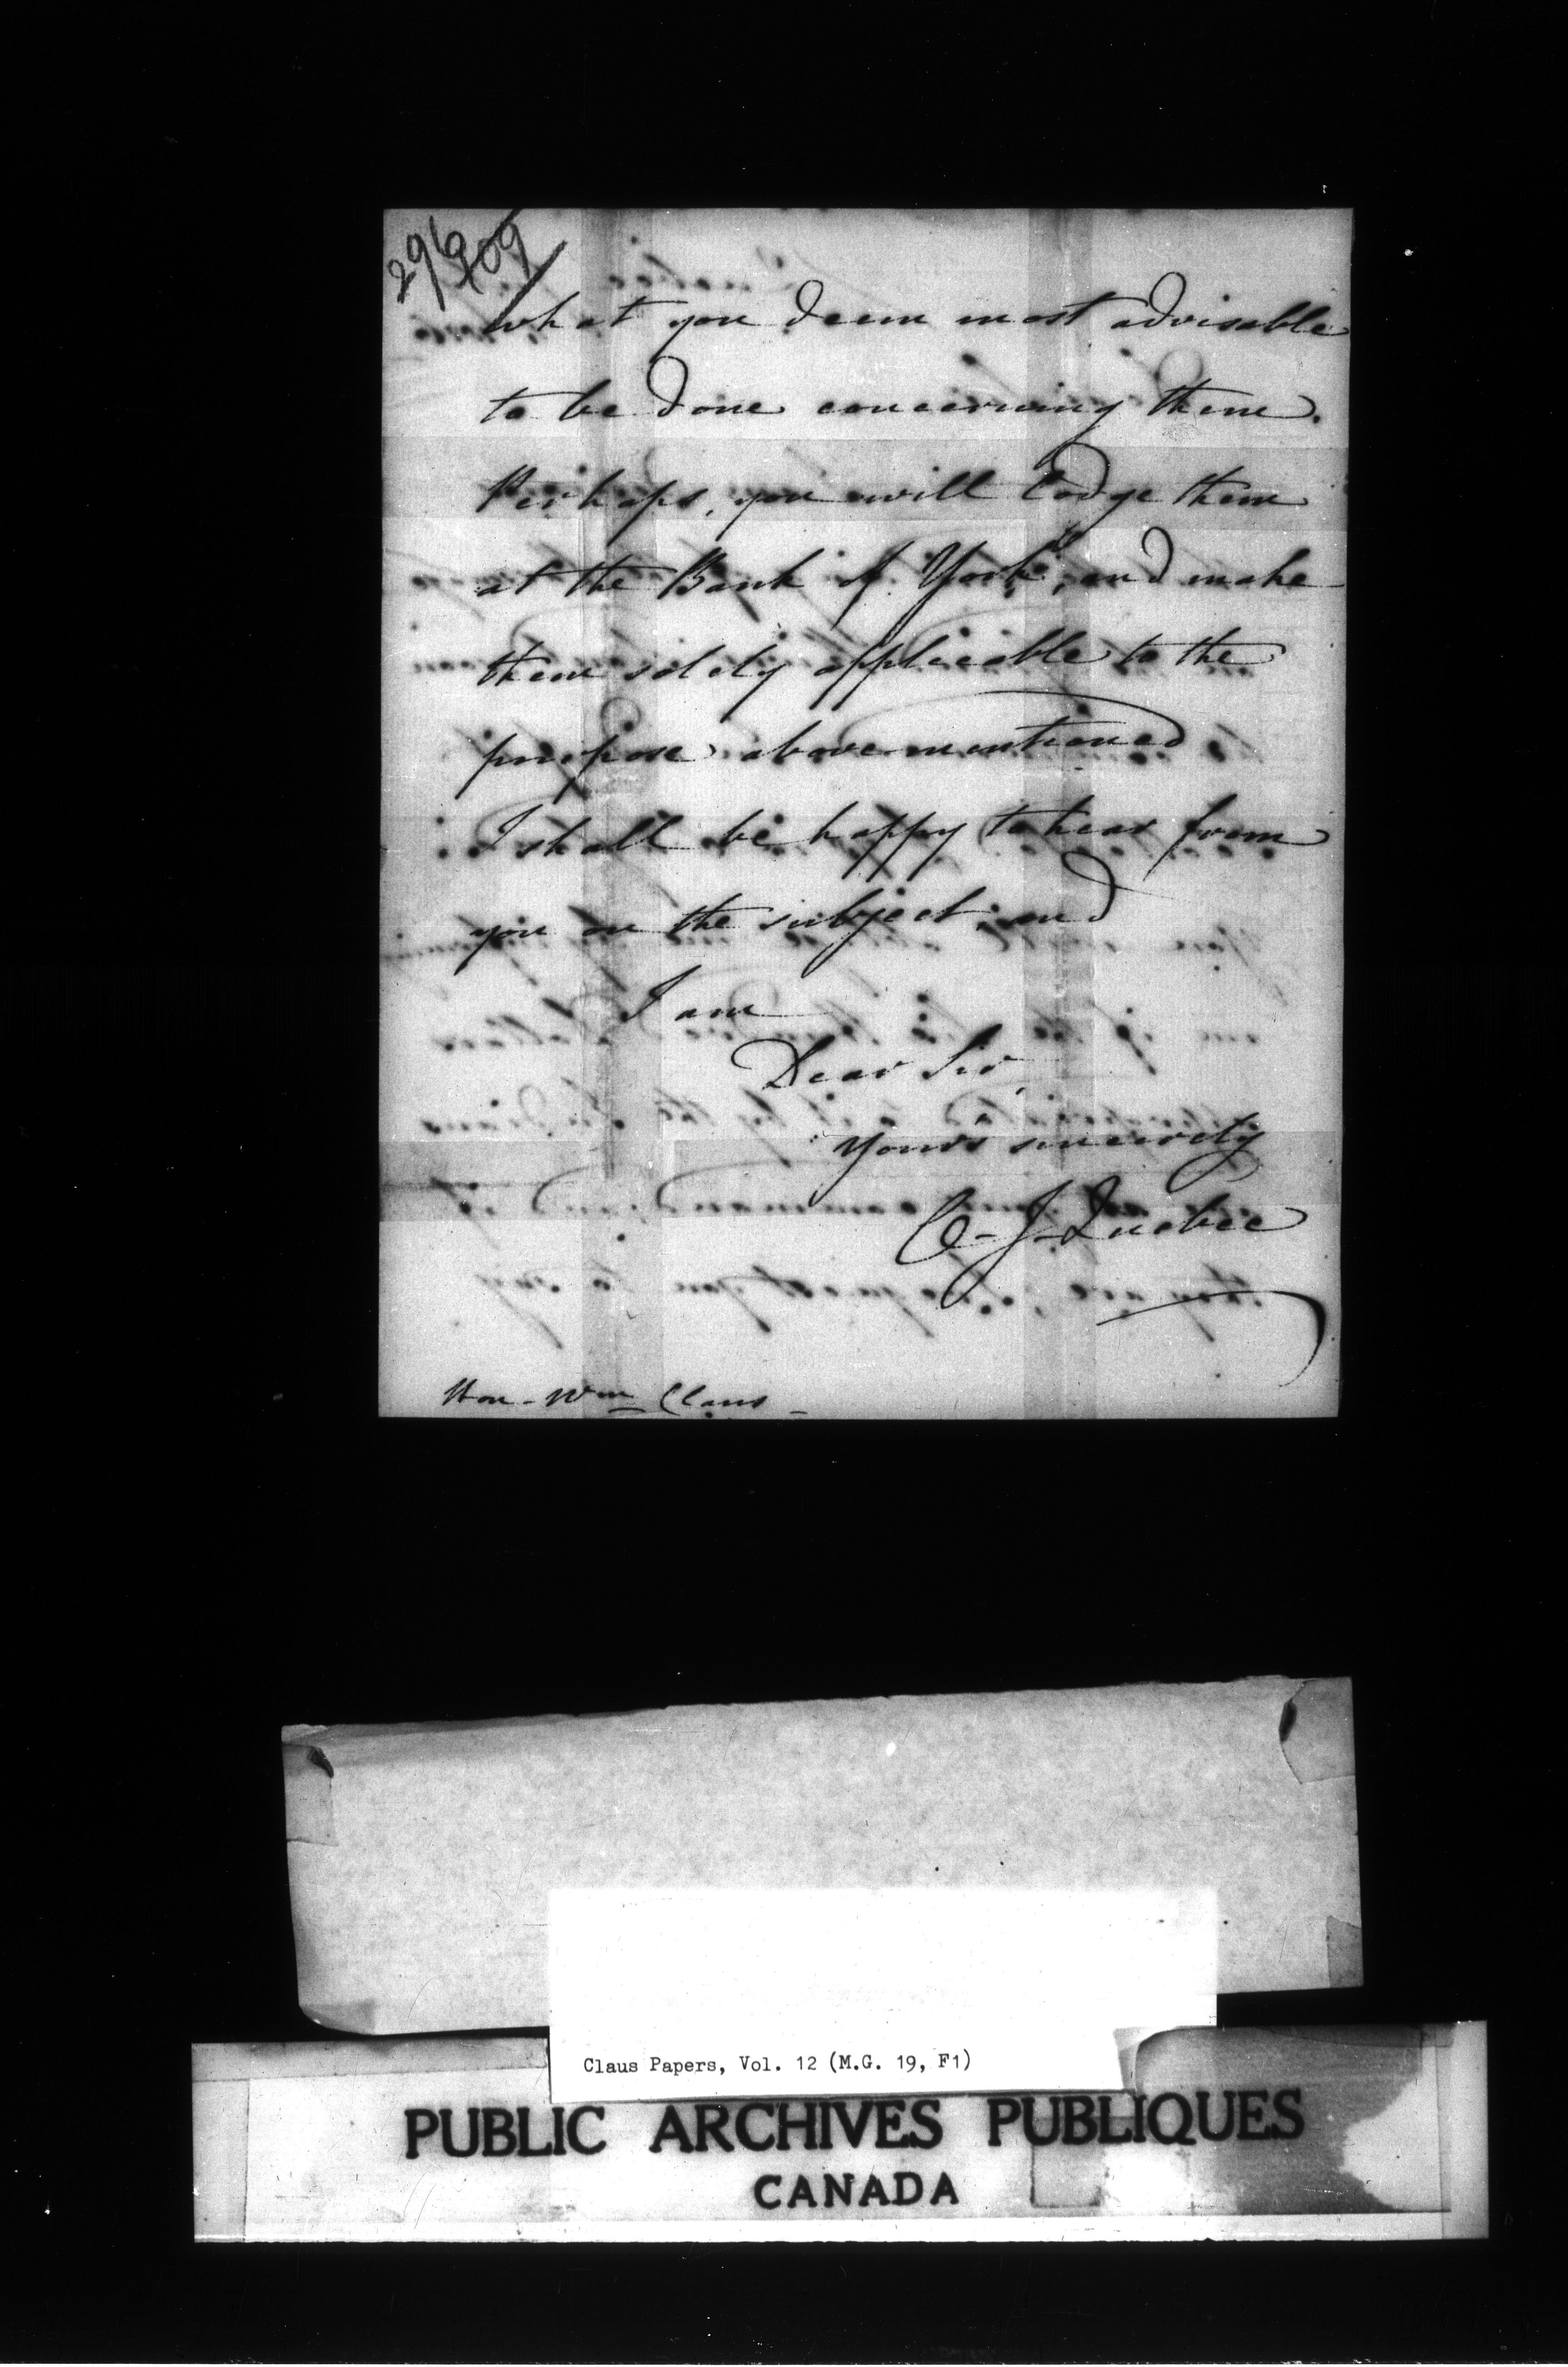 29 909
what you deem most advisable
to be done concerning them.
Perhaps, you will lodge them
at the Bank of York, and make
them solely applicable to the
purpose abovementioned
I shall be happy to hear from
you on the subject; and
I am
Dear Sir,
Yours sincerely
C-J-Quebec
Hon- Wm Claus-
Claus Papers, Vol. 12 (M.G. 19, F1)
PUBLIC ARCHIVES PUBLIQUES
CANADA